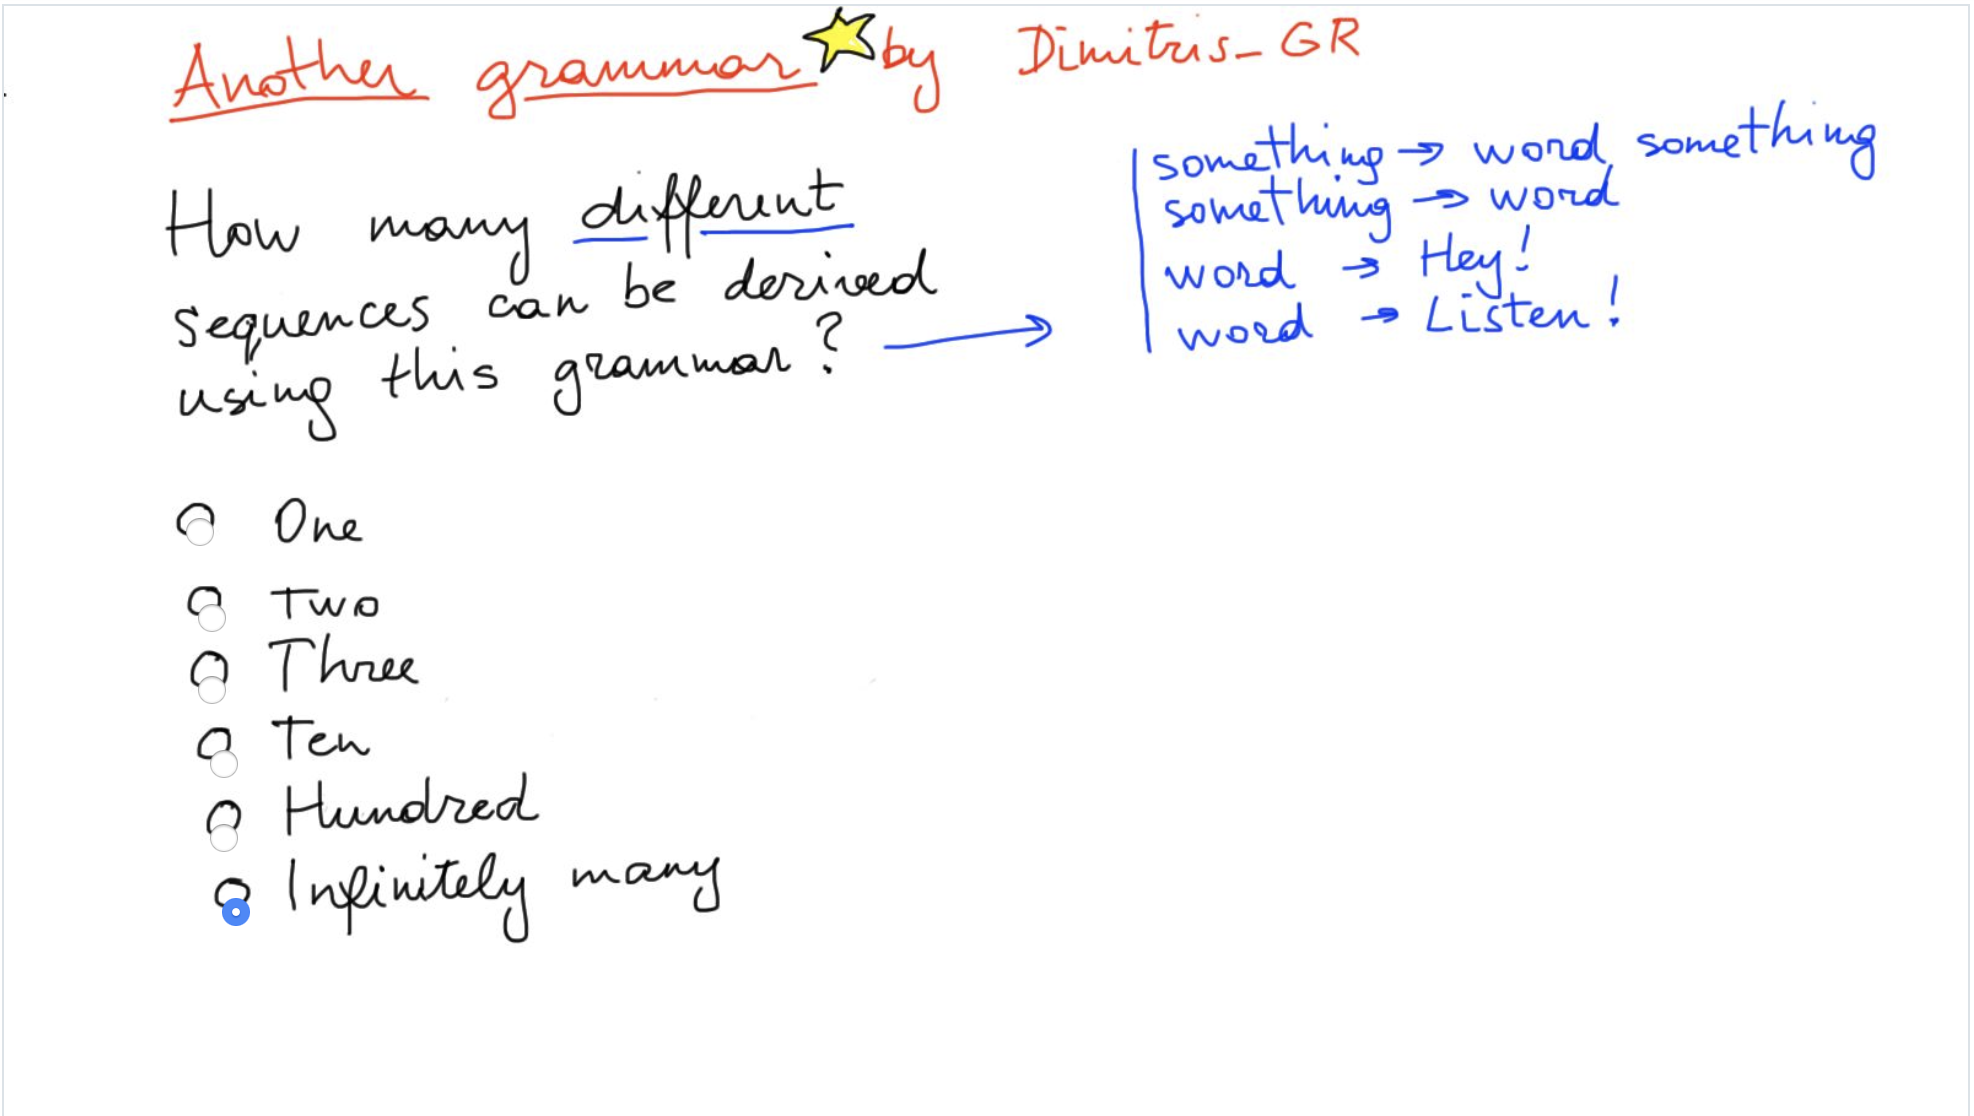 Another grammar by Dimitris_GR
How many different
sequences can be derived
using this grammar?
something → word something
something → word
word → Hey!
word → Listen!
One
Two
Three
Ten
Hundred
Infinitely many